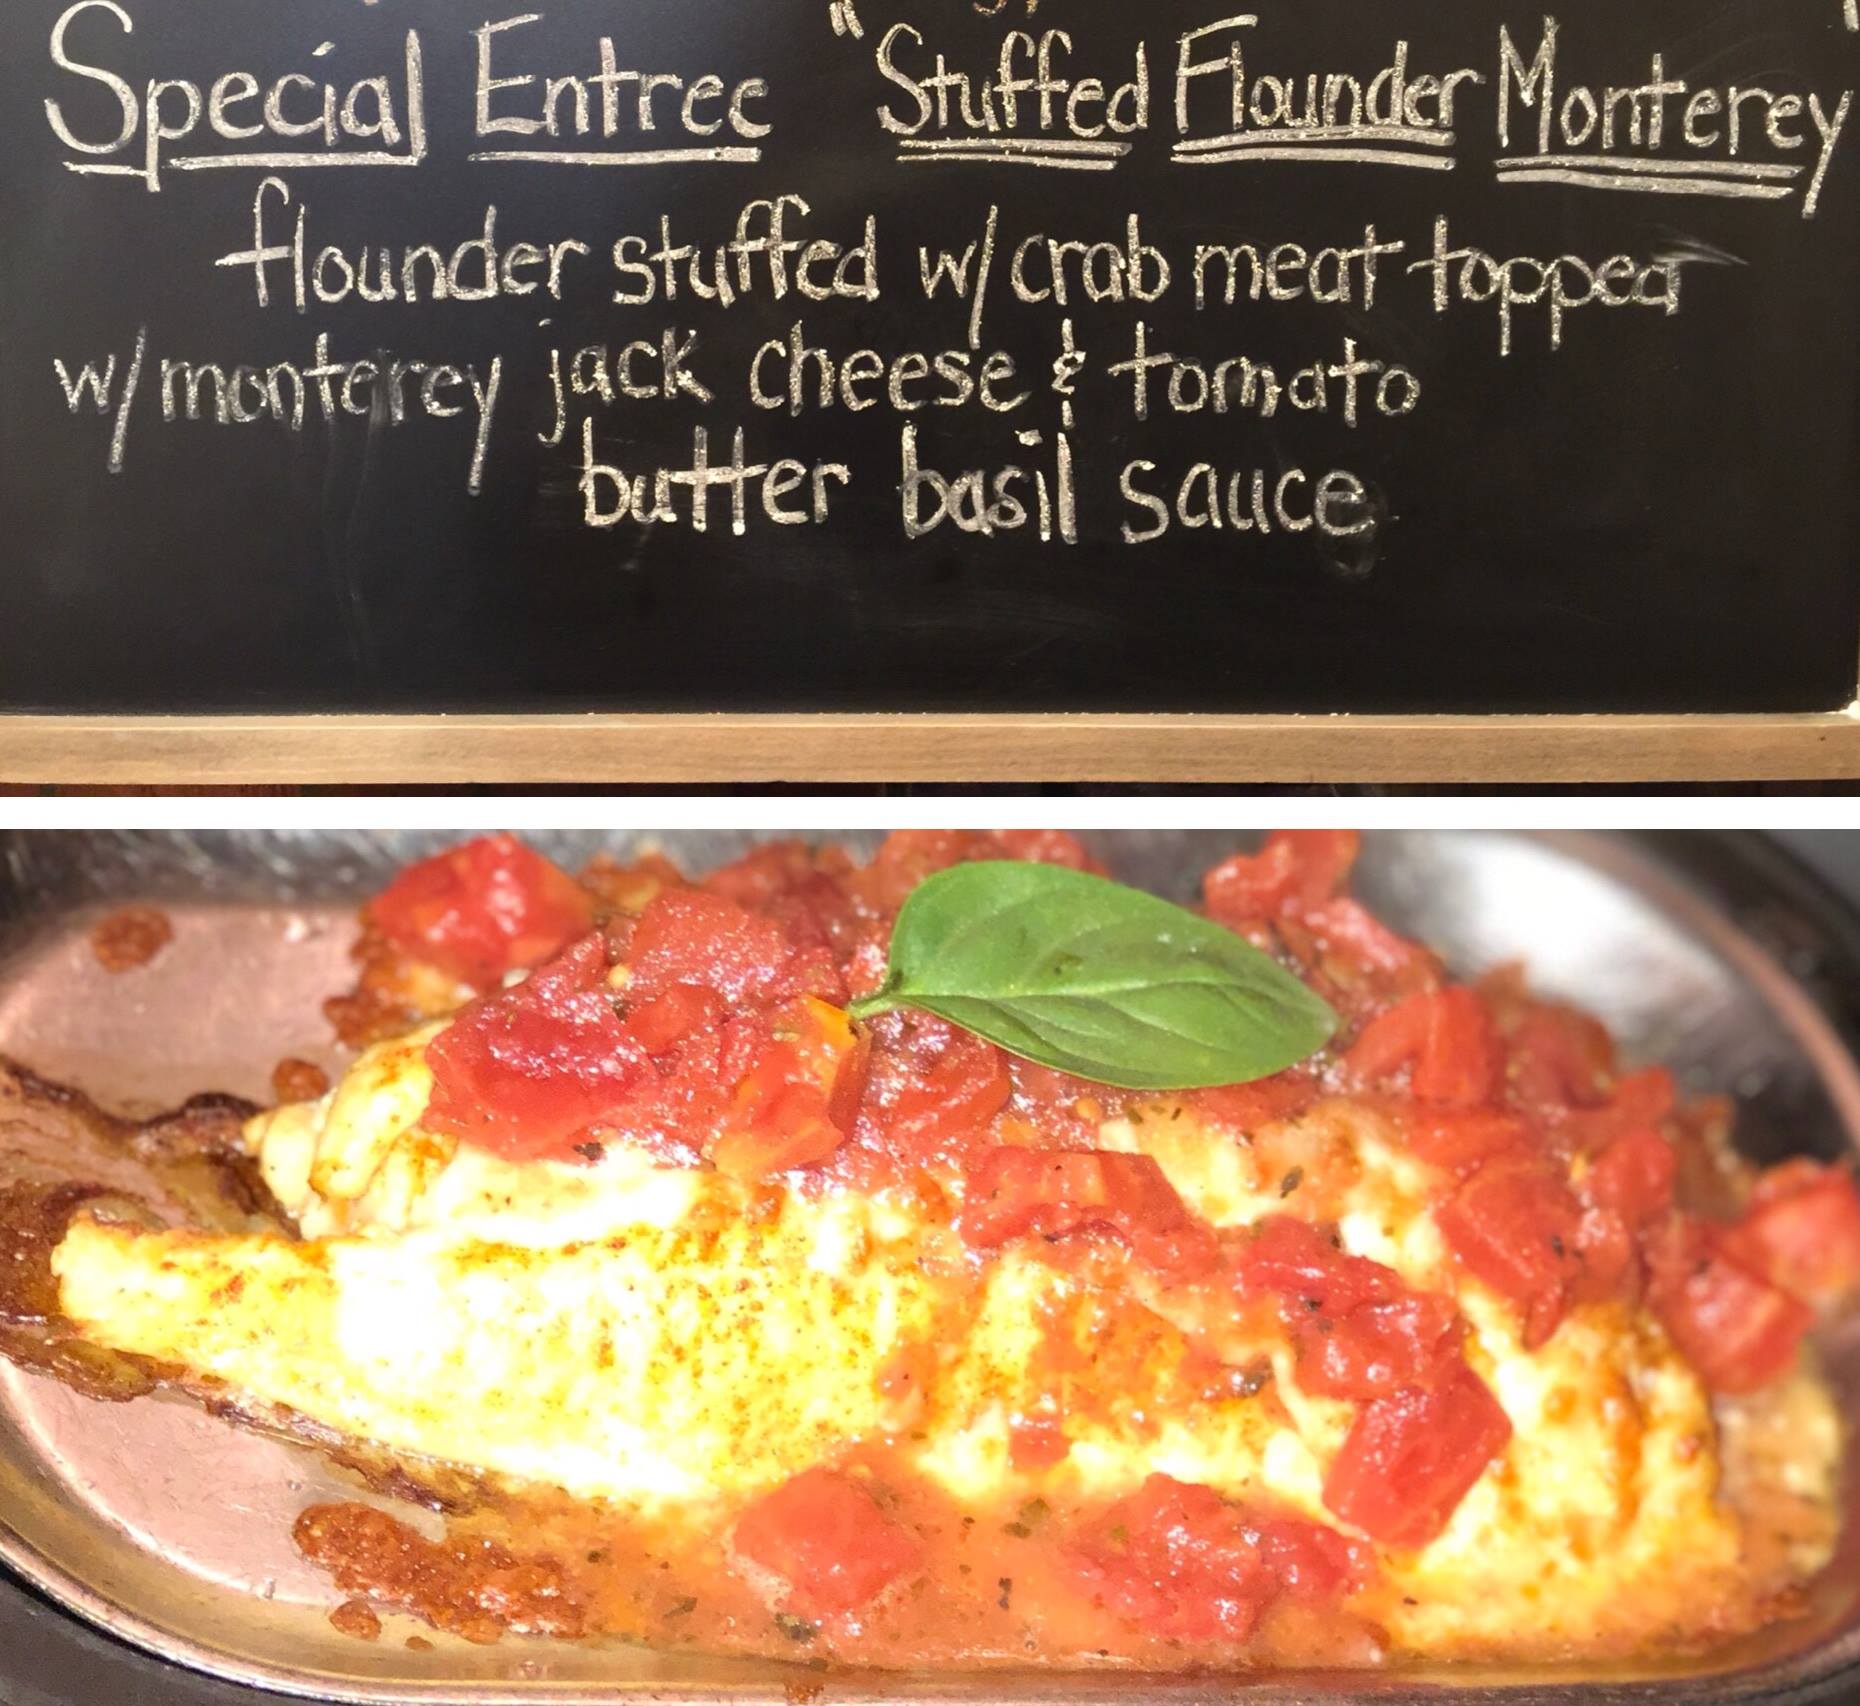 Special Entree "Stuffed Flounder Monterey"
flounder stuffed w/ crab meat topped
w/ monterey jack cheese & tomato
butter basil sauce